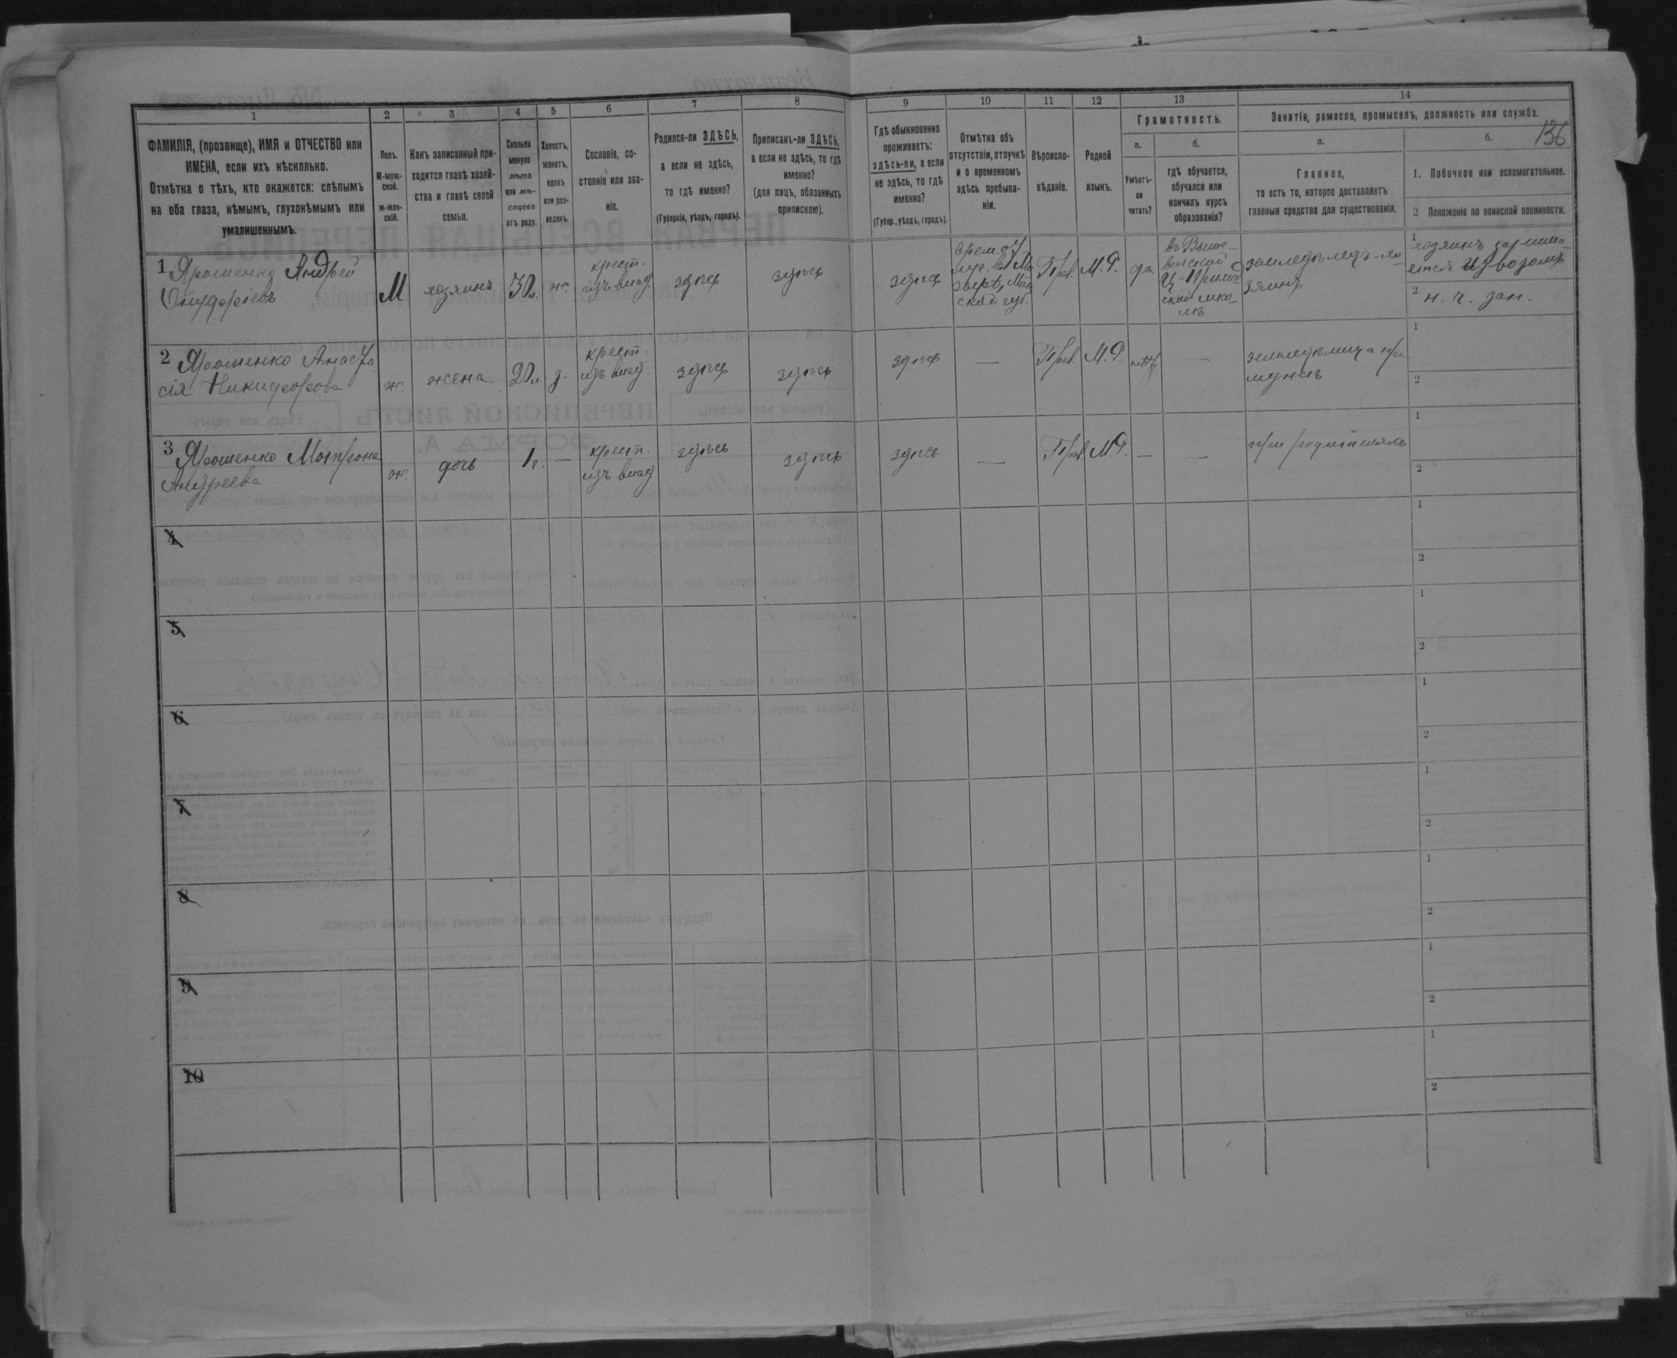 136
1
2
3
4
5
6
7
8
9
10
11
12
13
14
ФАМИЛІЯ, (прозвище), ИМЯ и ОТЧЕСТВО или
ИМЕНА, если ихъ нѣсколько.
Отмѣтка о тѣхъ, кто окажется: слѣпымъ
на оба глаза, нѣмымъ, глухонѣмымъ или
умалишеннымъ.
Полъ.
М-муж-
ской.
ж-жен-
скій.
Какъ записанный при-
ходится главѣ хозяй-
ства и главѣ своей
семьи.
Сколько
минуло
лѣтъ
или мѣ-
сяцевъ
отъ роду.
Холостъ,
женатъ,
вдовъ
или раз-
веденъ.
Сословіе, со-
стояніе или зва-
ніе.
Родился-ли ЗДѢСЬ,
а если не здѣсь,
то гдѣ именно?
(Губернія, уѣздъ, городъ).
Приписанъ-ли ЗДѢСЬ,
а если не здѣсь, то гдѣ
именно?
(для лицъ, обязанныхъ
припискою).
Гдѣ обыкновенно
проживаетъ:
здѣсь-ли, а если
не здѣсь, то гдѣ
именно?
(Губер., уѣздъ, городъ).
Отмѣтка объ
отсутствіи, отлучкѣ
и о временномъ
здѣсь пребыва-
ніи.
Вѣроиспо-
вѣданіе.
Родной
языкъ.
Грамотность.
а.
Умѣетъ-
ли
читать?
б.
гдѣ обучается,
обучался или
кончилъ курсъ
образованія?
Занятіе, ремесло, промыселъ, должность или служба.
а.
Главное,
то есть то, которое доставляетъ
главныя средства для существованія.
б.
1. Побочное или вспомогательное.
2 Положеніе по воинской повинности.
1 Ярошенко Андрей
Онуфріевъ
М
хозяинъ
30л.
ж.
крест.
изъ влад
здѣсь
здѣсь
здѣсь
Прав.
М.Р.
да
земледѣлецъ-хо
зяинъ
1 хозяинъ занима-
ется извозомъ
2
2 Ярошенко Анаста
сія Никифорова
ж.
жена
20л.
з.
крест.
изъ влад
здѣсь
здѣсь
здѣсь
—
Прав
М.Р.
нѣтъ
—
земледѣлица при
мужѣ
1
2
3 Ярошенко Матрона
Андреева
ж.
дочь
1г.
—
крест.
изъ влад
здѣсь
здѣсь
здѣсь
—
Прав
М.Р.
—
—
при родителяхъ
1
2
4
1
2
5
1
2
6
1
2
7
1
2
8
1
2
9
1
2
10
1
2